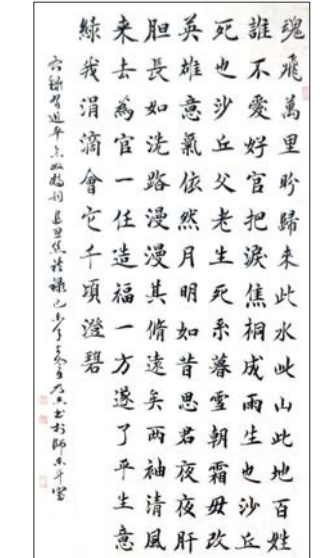 魂飛萬里盼歸來此水此山此地百姓
誰不愛好官把淚焦桐成雨生也沙丘
死也沙丘父老生死系暮雪朝霜毋改
英雄意氣依然月明如昔思君夜夜肝
胆長如洗路漫漫其脩遠矣兩袖清風
来去為官一任造福一方遂了平生意
綠我涓滴會它千頃澄碧
錄習近平念奴嬌詞追思焦裕祿